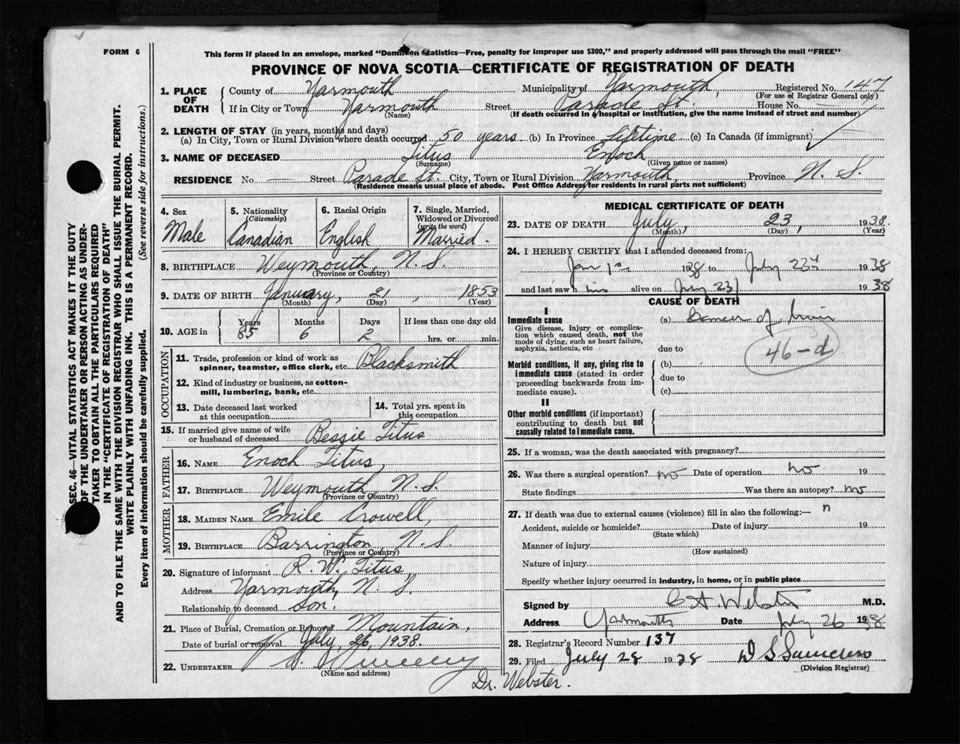 FORM 6
This form if placed in an envelope, marked "Dominion Statistics—Free, penalty for improper use $300," and properly addressed will pass through the mail "FREE"
PROVINCE OF NOVA SCOTIA—CERTIFICATE OF REGISTRATION OF DEATH
SEC. 46—VITAL STATISTICS ACT MAKES IT THE DUTY
OF THE UNDERTAKER OR PERSON ACTING AS UNDER-
TAKER TO OBTAIN ALL THE PARTICULARS REQUIRED
IN THE "CERTIFICATE OF REGISTRATION OF DEATH"
AND TO FILE THE SAME WITH THE DIVISION REGISTRAR WHO SHALL ISSUE THE BURIAL PERMIT.
WRITE PLAINLY WITH UNFADING INK. THIS IS A PERMANENT RECORD.
Every item of information should be carefully supplied. (See reverse side for instructions.)
1. PLACE OF DEATH County of Yarmouth Municipality of Yarmouth, Registered No. 147
(For use of Registrar General only)
If in City or Town Yarmouth Street Parade St. House No. —
(Name) (If death occurred in a hospital or institution, give the name instead of street and number)
2. LENGTH OF STAY (in years, months and days)
(a) In City, Town or Rural Division where death occurred 50 years (b) In Province Lifetime (c) In Canada (if immigrant)
3. NAME OF DECEASED Titus Enoch
(Surname) (Given name or names)
RESIDENCE No — Street Parade St. City, Town or Rural Division Yarmouth, Province N. S.
(Residence means usual place of abode. Post Office Address for residents in rural parts not sufficient)
4. Sex Male
5. Nationality (Citizenship) Canadian
6. Racial Origin English
7. Single, Married, Widowed or Divorced (write the word) Married.
8. BIRTHPLACE Weymouth, N. S.
(Province or Country)
9. DATE OF BIRTH January, 21, 1853
(Month) (Day) (Year)
10. AGE in Years 85 Months 6 Days 2 If less than one day old hrs. or min.
OCCUPATION
11. Trade, profession or kind of work as spinner, teamster, office clerk, etc. Blacksmith
12. Kind of industry or business, as cotton-mill, lumbering, bank, etc.
13. Date deceased last worked at this occupation
14. Total yrs. spent in this occupation
15. If married give name of wife or husband of deceased Bessie Titus
FATHER
16. NAME Enoch Titus,
17. BIRTHPLACE Weymouth N. S.
(Province or Country)
MOTHER
18. MAIDEN NAME Emile Crowell,
19. BIRTHPLACE Barrington, N. S.
(Province or Country)
20. Signature of informant R. W. Titus,
Address Yarmouth, N. S.
Relationship to deceased son.
21. Place of Burial, Cremation or Removal Mountain,
Date of burial or removal July, 26, 1938.
22. UNDERTAKER
(Name and address)
MEDICAL CERTIFICATE OF DEATH
23. DATE OF DEATH July, 23, 1938.
(Month) (Day) (Year)
24. I HEREBY CERTIFY that I attended deceased from:
Jan 1st 1938 to July 23rd 1938
and last saw him alive on July 23 1938
CAUSE OF DEATH
I
Immediate cause
Give disease, injury or complication which caused death, not the mode of dying, such as heart failure, asphyxia, asthenia, etc
(a) of
due to
46-d
Morbid conditions, if any, giving rise to immediate cause (stated in order proceeding backwards from immediate cause).
(b)
due to
(c)
II
Other morbid conditions (if important) contributing to death but not causally related to immediate cause.
25. If a woman, was the death associated with pregnancy?
26. Was there a surgical operation? no Date of operation no 19
State findings Was there an autopsy? no
27. If death was due to external causes (violence) fill in also the following:— n
Accident, suicide or homicide? Date of injury 19
(State which)
Manner of injury
(How sustained)
Nature of injury
Specify whether injury occurred in industry, in home, or in public place
Signed by Webster M.D.
Address Yarmouth Date July 26 1938.
28. Registrar's Record Number 137
29. Filed July 28 1938 D S Saunders
(Division Registrar)
Dr. Webster.